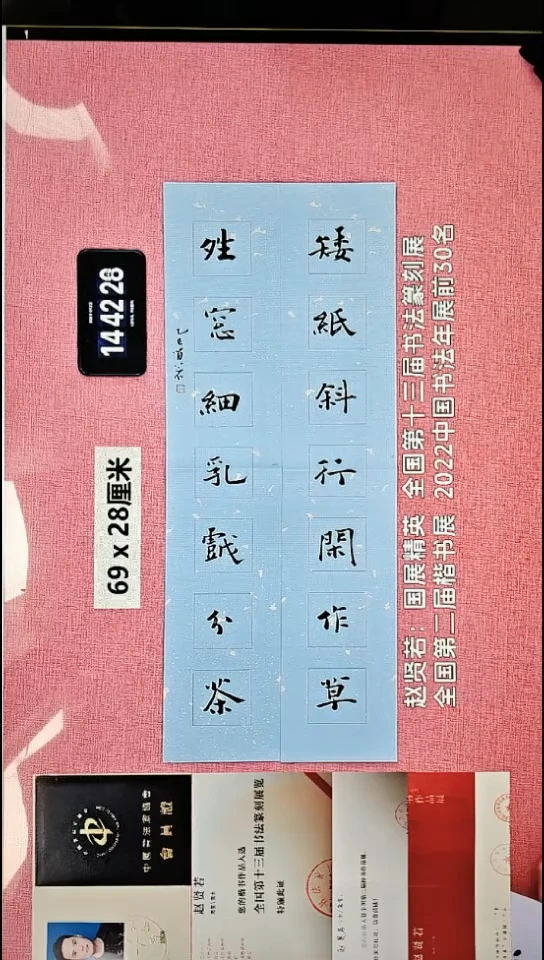 矮紙斜行閑作草
夝窓細乳戲分茶
14 42 28
69 x 28厘米
赵贤若：国展精英 全国第十三届书法篆刻展
全国第二届楷书展 2022中国书法年展前30名
中國书法家協會
會員證
赵贤若
您的楷书作品入选
全国第十三届书法篆刻展览
特颁此证
赵贤若